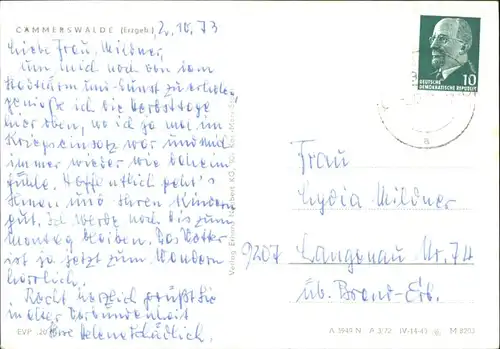 CÄMMERSWALDE (Erzgeb.) 2.10.73
Liebe Frau Mildner,
um mich noch von dem
Großstadtlärm und -dunst zu erholen,
genieße ich die Herbsttage
hier oben, wo ich ja mal im
Kriegseinsatz war und mich
immer wieder wie daheim
fühle. Hoffentlich geht's
Ihnen und Ihren Kindern
gut. Ich werde noch bis zum
Montag bleiben. Das Wetter
ist ja jetzt zum Wandern
herrlich.
Recht herzlich grüßt Sie
in alter Verbundenheit
Ihre
EVP -,20
Verlag Erhard Neubert KG, Karl-Marx-Stadt
10
DEUTSCHE
DEMOKRATISCHE REPUBLIK
a
Frau
Lydia Mildner
9207 Langenau Nr. 74
üb. Brand-Erb.
A 3949 N A 3/72 IV-14-45 M 8203